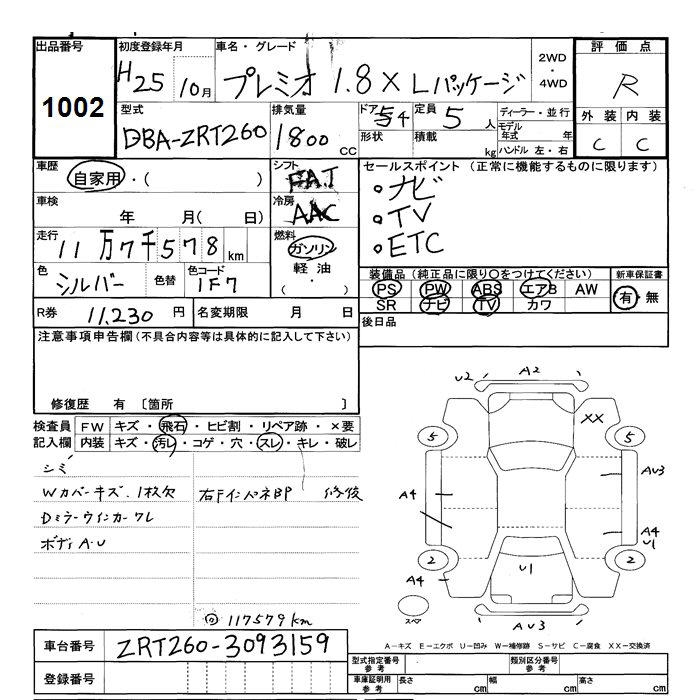 出品番号 初度登録年月 車名・グレード 評価点
1002 H25 10月 プレミオ 1.8X Lパッケージ 2WD・4WD R
型式 排気量 ドア 定員 ディーラー・並行 外装 内装
DBA-ZRT260 1800 CC 5 4 5人 モデル年式 年 C C
形状 積載 kg ハンドル 左・右
車歴 シフト セールスポイント (正常に機能するものに限ります)
自家用・( ) FAT
○ナビ
車検 冷房
年 月( 日) AAC
○TV
走行 燃料
11万7千578km ガソリン
○ETC
色 色替 色コード 軽油
シルバー 1F7 (・)
装備品(純正品に限り○をつけてください) 新車保証書
PS PW ABS エアB AW 有・無
SR ナビ TV カワ
R券 11,230円 名変期限 月 日 後日品
注意事項申告欄(不具合内容等は具体的に記入して下さい)
修復歴 有 〔箇所 〕
検査員 FW キズ・飛石・ヒビ割・リペア跡・×要
記入欄 内装 キズ・汚レ・コゲ・穴・スレ・キレ・破レ
シミ
Wカバーキズ、1枚欠 右Fインパネ BP 修復
Dミラーウインカーワレ
ボディA・U
117579km
U2 A2
XX
5 5
A4 AU3
A4
U1
2 2
A4 U1
スペ AU3
A−キズ E−エクボ U−凹み W−補修跡 S−サビ C−腐食 XX−交換済
車台番号 ZRT260-3093159
登録番号
型式指定番号 参考 類別区分番号 参考
車庫証明用 参考 長さ cm 幅 cm 高さ cm